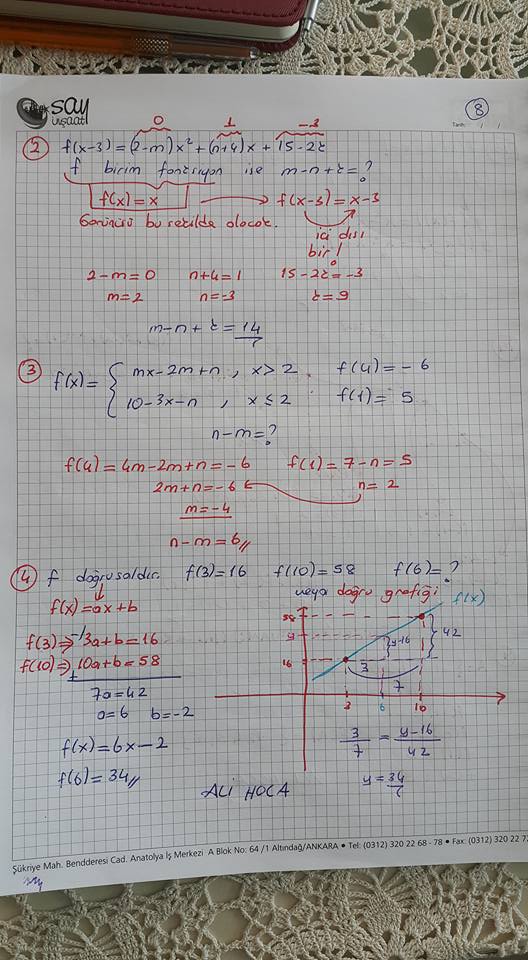 say
inşaat
8
Tarih: / /
0 1 -3
② f(x-3) = (2-m)x² + (n+4)x + 15-2t
f birim fonksiyon ise m-n+t=?
f(x)=x → f(x-3) = x-3
Görüntüsü bu şekilde olacak.
içi dışı
bir!
2-m=0 n+4=1 15-2t=-3
m=2 n=-3 t=9
m-n+t=14
③ f(x)= { mx-2m+n , x>2 f(4)=-6
10-3x-n , x≤2 f(1)=5
n-m=?
f(4)=4m-2m+n=-6 f(1)=7-n=5
2m+n=-6 n=2
m=-4
n-m=6
④ f doğrusaldır. f(3)=16 f(10)=58 f(6)=?
f(x)=ax+b
veya doğru grafiği
f(x)
f(3)⇒ -1/ 3a+b=16
f(10)⇒ 10a+b=58
+
7a=42
a=6 b=-2
f(x)=6x-2
f(6)=34
58
y
16
y-16
42
3
7
3 6 10
3/7 = y-16/42
y=34
ALİ HOCA
Şükriye Mah. Bendderesi Cad. Anatolya İş Merkezi A Blok No: 64 /1 Altındağ/ANKARA • Tel: (0312) 320 22 68 - 78 • Fax: (0312) 320 22 7